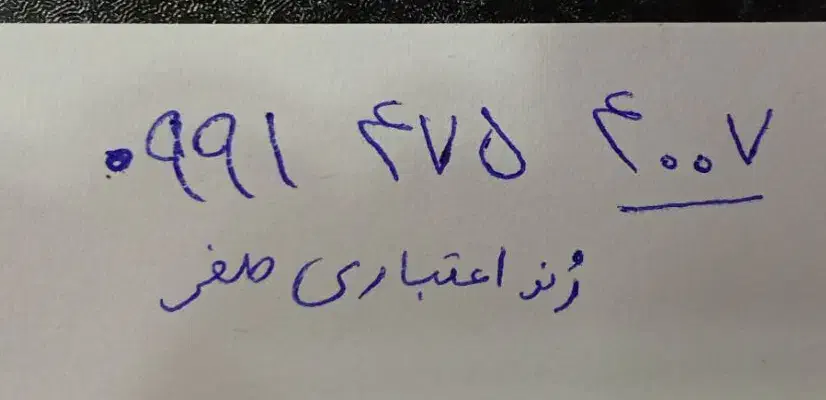 ۰۹۹۱ ۴۷۵ ۴۰۰۷
رُند اعتباری صفر